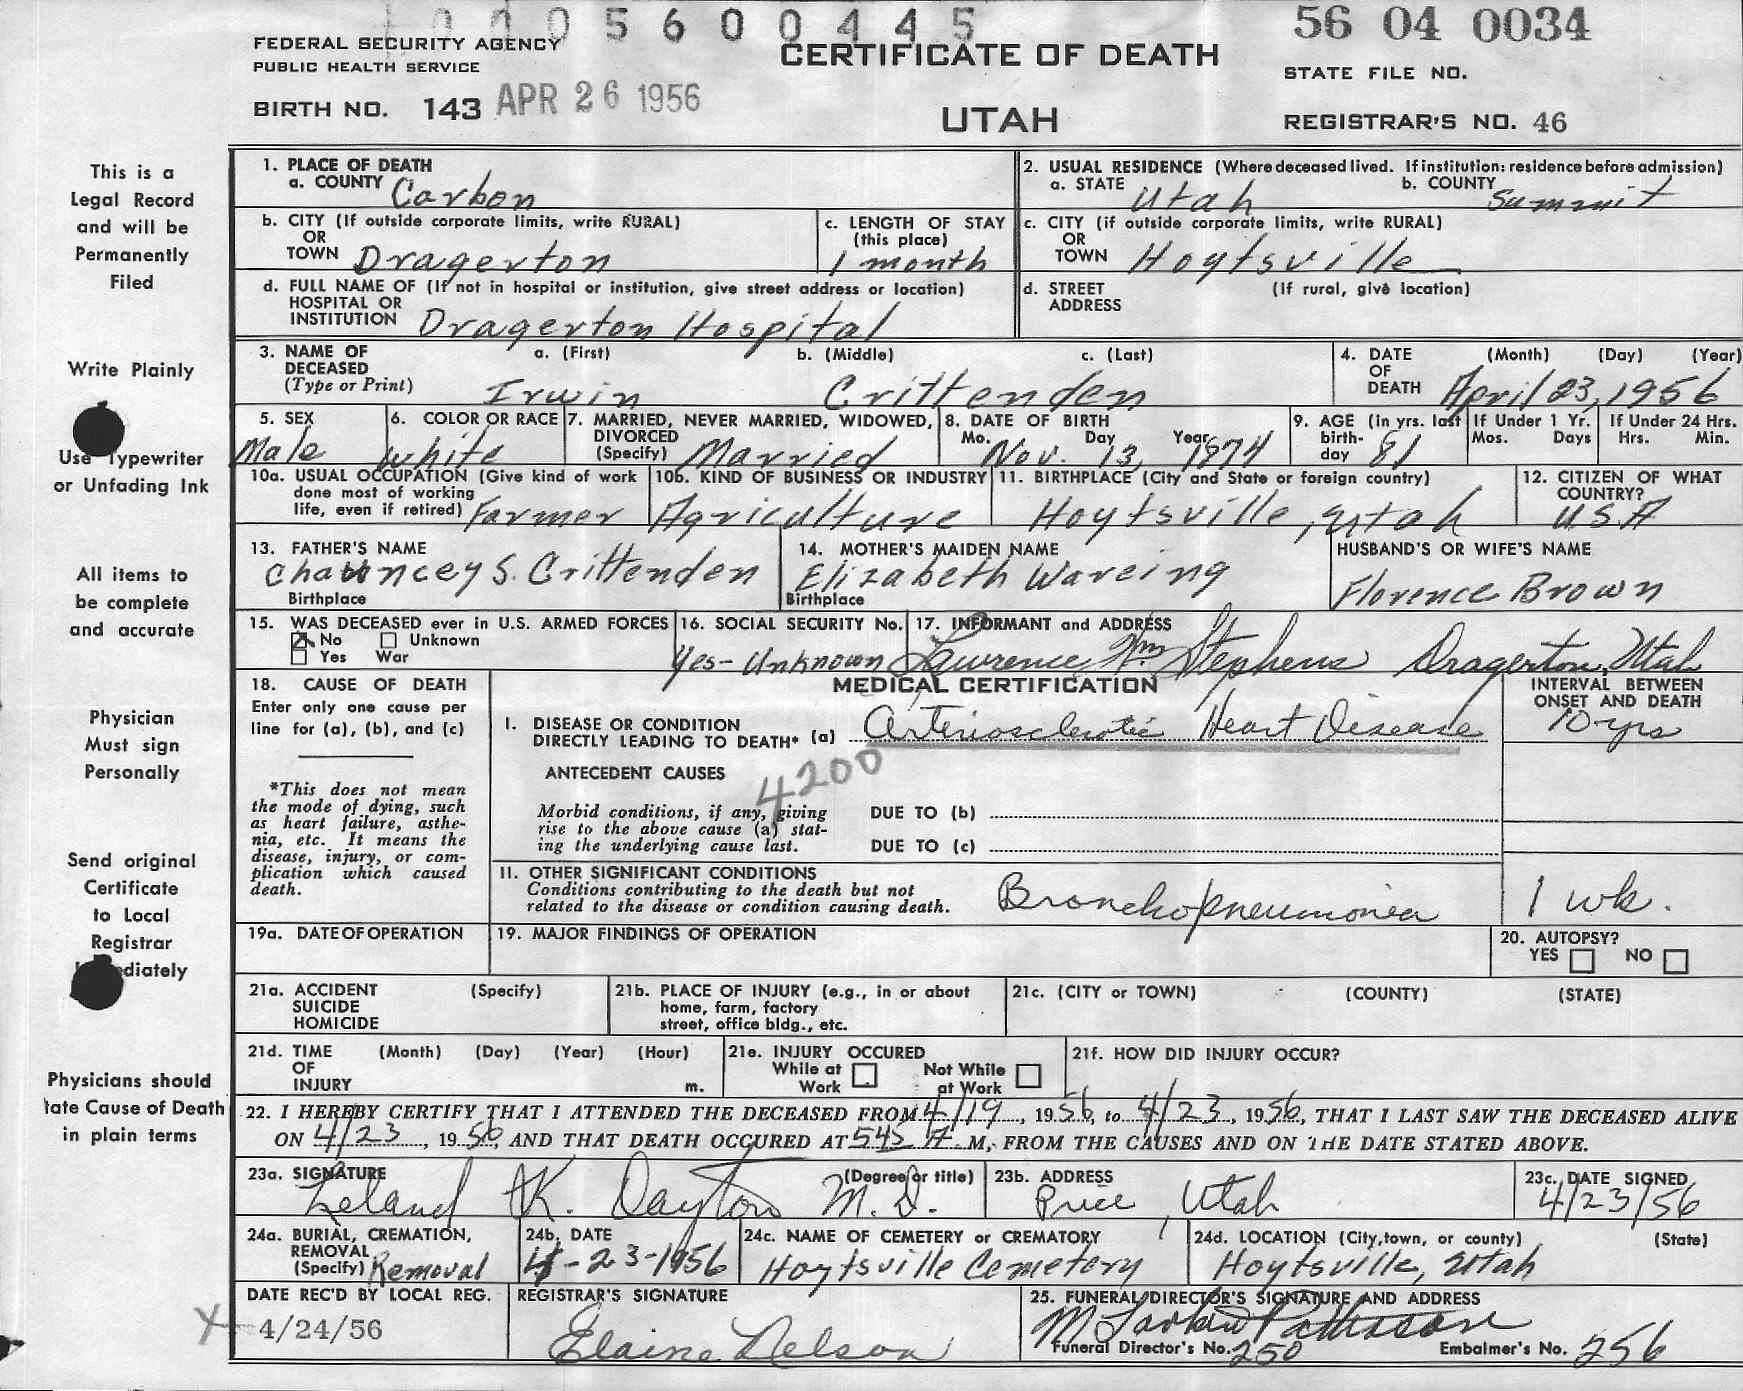 1005600445
56 04 0034
FEDERAL SECURITY AGENCY
PUBLIC HEALTH SERVICE
CERTIFICATE OF DEATH
STATE FILE NO.
BIRTH NO. 143 APR 26 1956
UTAH
REGISTRAR'S NO. 46
This is a
Legal Record
and will be
Permanently
Filed
Write Plainly
Use Typewriter
or Unfading Ink
All items to
be complete
and accurate
Physician
Must sign
Personally
Send original
Certificate
to Local
Registrar
diately
Physicians should
tate Cause of Death
in plain terms
1. PLACE OF DEATH
a. COUNTY Carbon
2. USUAL RESIDENCE (Where deceased lived. If institution: residence before admission)
a. STATE Utah b. COUNTY Summit
b. CITY (If outside corporate limits, write RURAL)
OR
TOWN Dragerton
c. LENGTH OF STAY
(this place)
1 month
c. CITY (if outside corporate limits, write RURAL)
OR
TOWN Hoytsville
d. FULL NAME OF (If not in hospital or institution, give street address or location)
HOSPITAL OR
INSTITUTION Dragerton Hospital
d. STREET (If rural, give location)
ADDRESS
3. NAME OF DECEASED (Type or Print)
a. (First) b. (Middle) c. (Last)
Irwin Crittenden
4. DATE OF DEATH (Month) (Day) (Year)
April 23, 1956
5. SEX
Male
6. COLOR OR RACE
White
7. MARRIED, NEVER MARRIED, WIDOWED,
DIVORCED
(Specify) Married
8. DATE OF BIRTH
Mo. Day Year
Nov. 13, 1874
9. AGE (in yrs. last
birth-
day 81
If Under 1 Yr.
Mos. Days
If Under 24 Hrs.
Hrs. Min.
10a. USUAL OCCUPATION (Give kind of work
done most of working
life, even if retired) Farmer
10b. KIND OF BUSINESS OR INDUSTRY
Agriculture
11. BIRTHPLACE (City and State or foreign country)
Hoytsville, Utah
12. CITIZEN OF WHAT
COUNTRY?
USA
13. FATHER'S NAME
Chauncey S. Crittenden
Birthplace
14. MOTHER'S MAIDEN NAME
Elizabeth Wareing
Birthplace
HUSBAND'S OR WIFE'S NAME
Florence Brown
15. WAS DECEASED ever in U.S. ARMED FORCES
No Unknown
Yes War
16. SOCIAL SECURITY No.
Yes- Unknown
17. INFORMANT and ADDRESS
Lawrence Wm Stephens Dragerton, Utah
18. CAUSE OF DEATH
Enter only one cause per
line for (a), (b), and (c)
*This does not mean
the mode of dying, such
as heart failure, asthe-
nia, etc. It means the
disease, injury, or com-
plication which caused
death.
MEDICAL CERTIFICATION
INTERVAL BETWEEN
ONSET AND DEATH
I. DISEASE OR CONDITION
DIRECTLY LEADING TO DEATH* (a) Arteriosclerotic Heart Disease 10 yrs
ANTECEDENT CAUSES
4200
Morbid conditions, if any, giving
rise to the above cause (a) stat-
ing the underlying cause last.
DUE TO (b)
DUE TO (c)
11. OTHER SIGNIFICANT CONDITIONS
Conditions contributing to the death but not
related to the disease or condition causing death.
Bronchopneumonia 1 wk.
19a. DATE OF OPERATION
19. MAJOR FINDINGS OF OPERATION
20. AUTOPSY?
YES NO
21a. ACCIDENT (Specify)
SUICIDE
HOMICIDE
21b. PLACE OF INJURY (e.g., in or about
home, farm, factory
street, office bldg., etc.
21c. (CITY or TOWN) (COUNTY) (STATE)
21d. TIME (Month) (Day) (Year) (Hour)
OF
INJURY m.
21e. INJURY OCCURED
While at Work
Not While at Work
21f. HOW DID INJURY OCCUR?
22. I HEREBY CERTIFY THAT I ATTENDED THE DECEASED FROM 4/19, 1956, to 4/23, 1956, THAT I LAST SAW THE DECEASED ALIVE
ON 4/23, 1956, AND THAT DEATH OCCURED AT 545 A. M, FROM THE CAUSES AND ON THE DATE STATED ABOVE.
23a. SIGNATURE (Degree or title)
Leland K. Dayton M.D.
23b. ADDRESS
Price, Utah
23c. DATE SIGNED
4/23/56
24a. BURIAL, CREMATION,
REMOVAL
(Specify) Removal
24b. DATE
4-23-1956
24c. NAME OF CEMETERY or CREMATORY
Hoytsville Cemetery
24d. LOCATION (City, town, or county) (State)
Hoytsville, Utah
DATE REC'D BY LOCAL REG.
4/24/56
REGISTRAR'S SIGNATURE
Elaine Nelson
25. FUNERAL DIRECTOR'S SIGNATURE AND ADDRESS
Funeral Director's No. 250 Embalmer's No. 256